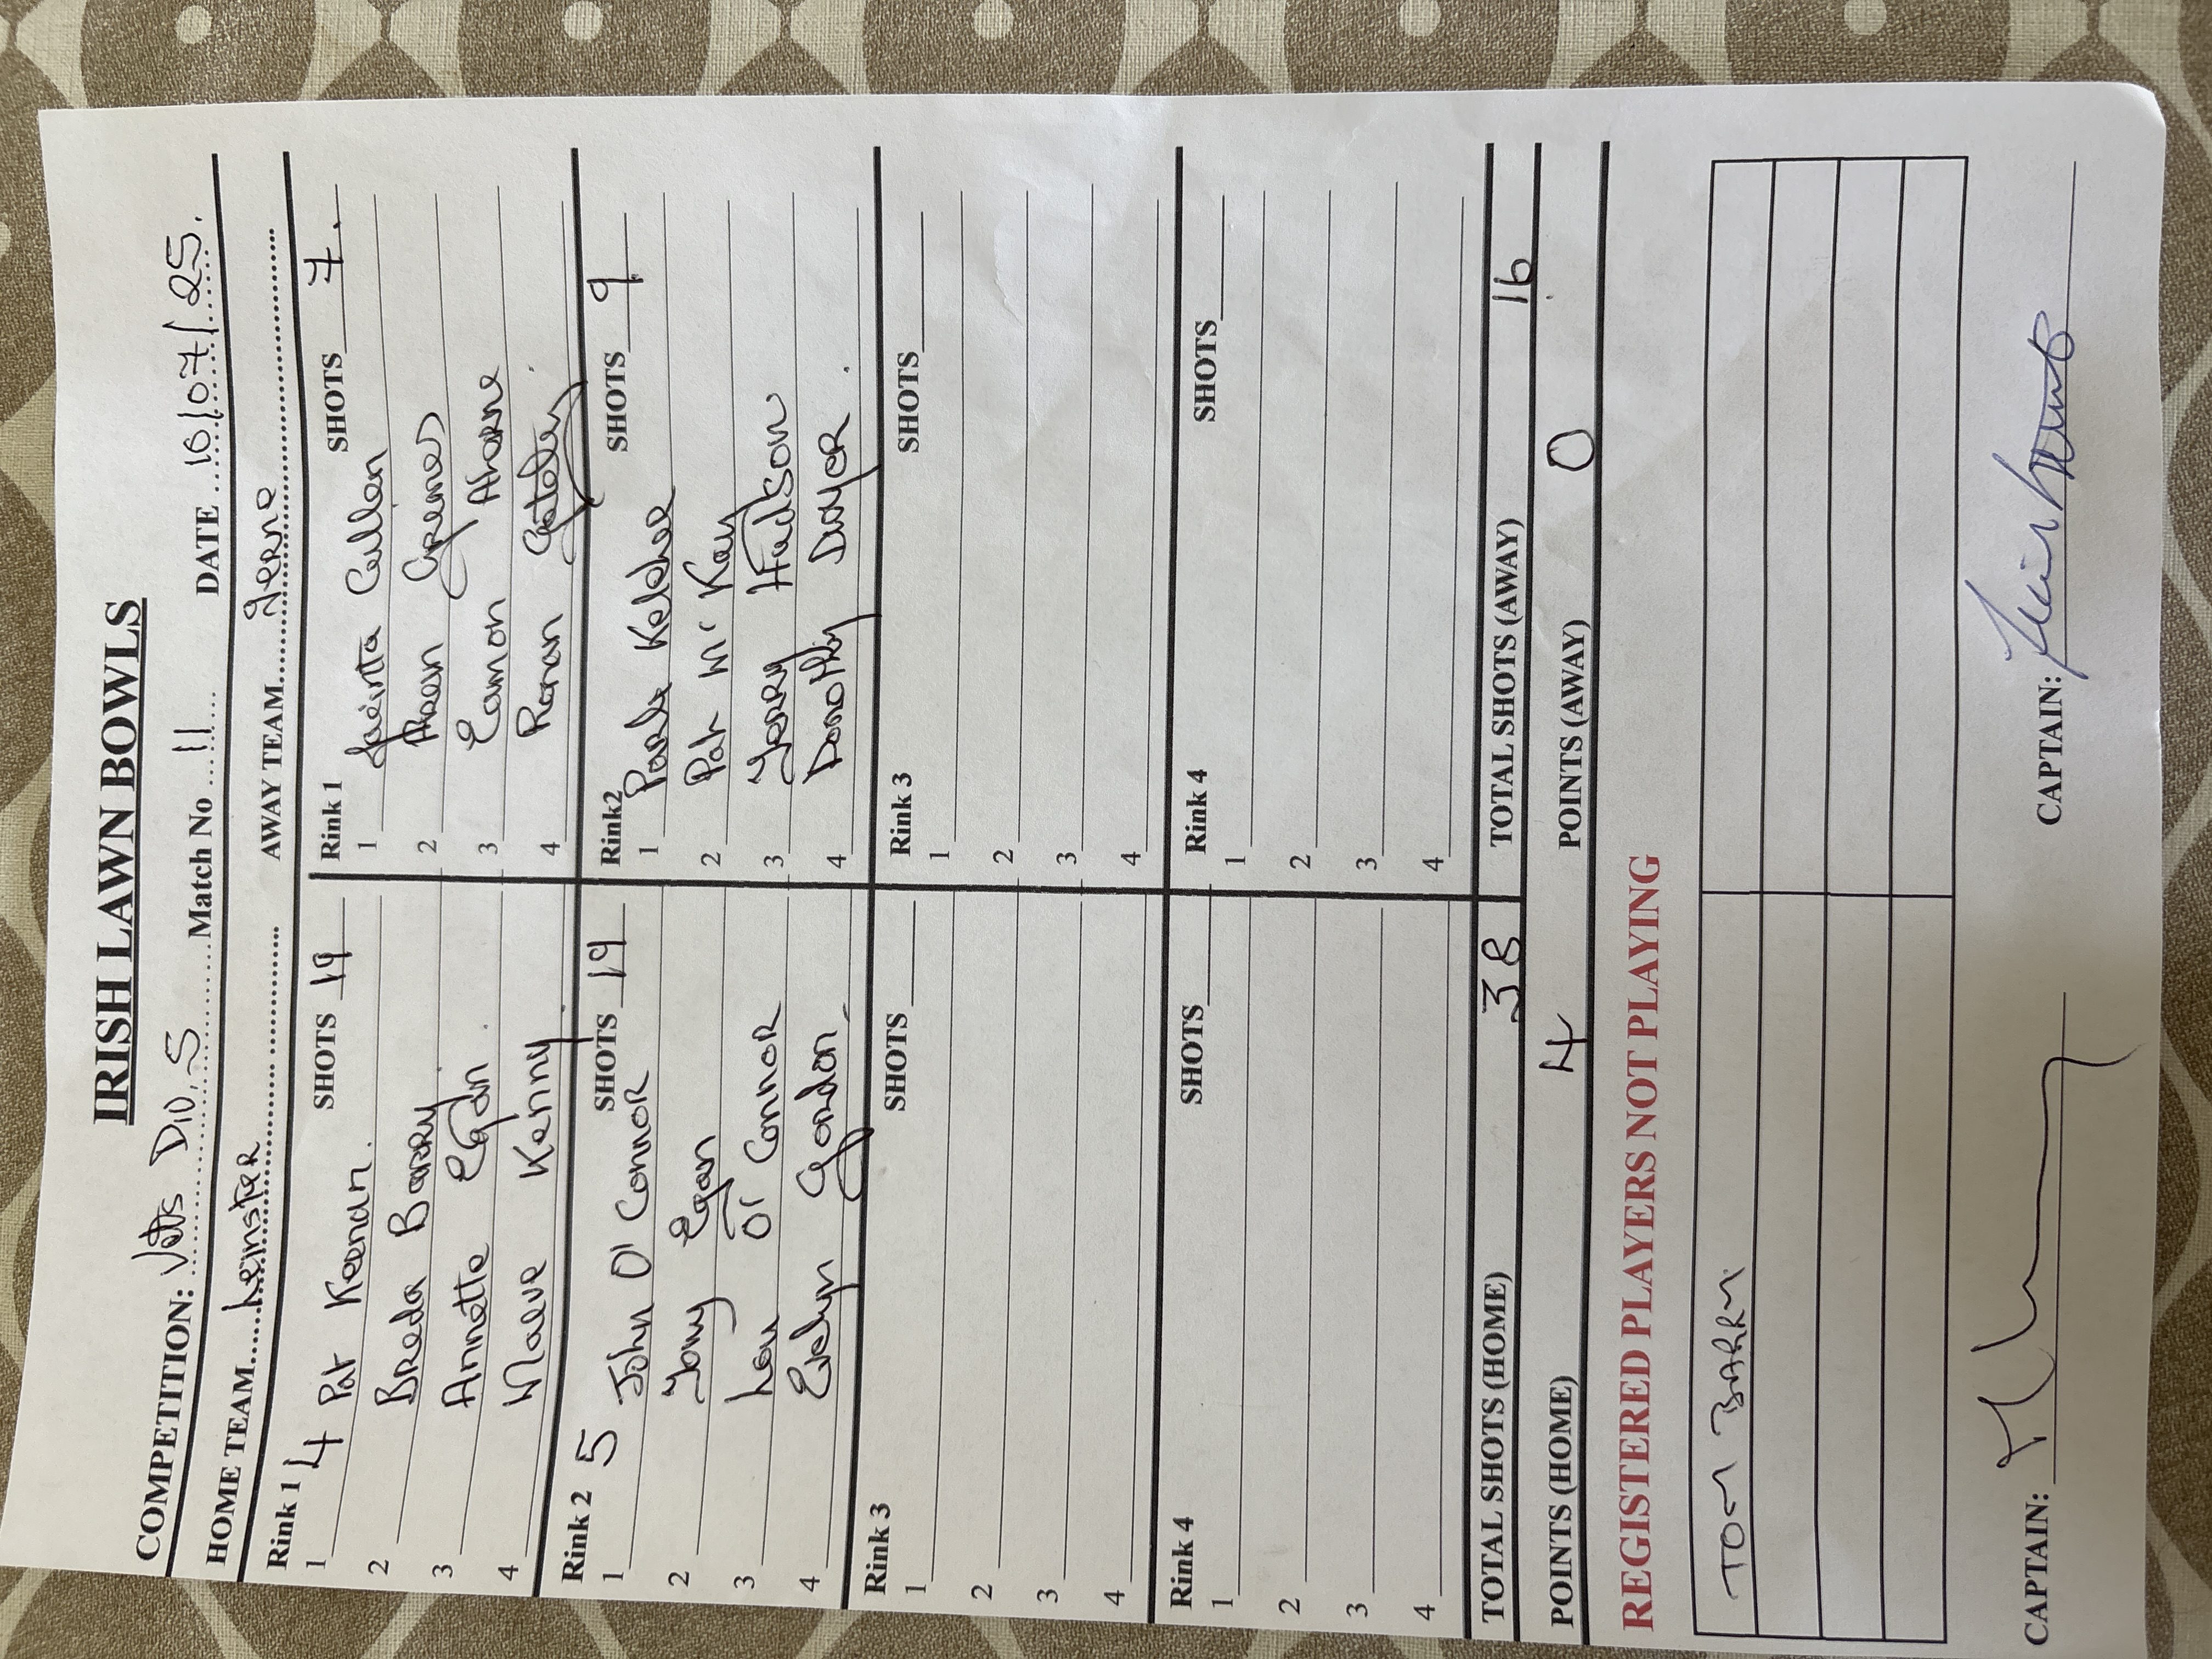 IRISH LAWN BOWLS
COMPETITION: Vets Div. 5 Match No 11 DATE 10/07/25.
HOME TEAM Leinster AWAY TEAM Ierne
Rink 1 4 SHOTS 19
1 Pat Keenan.
2 Breda Barry
3 Annette Egan.
4 Maeve Kenny
Rink 1 SHOTS 7.
1 Jacinta Cullen
2 Greenes
3 Eamon Aherne
4 Ronan Gateley
Rink 2 5 SHOTS 19
1 John O'Connor
2 Tony Egan
3 Lou O'Connor
4 Evelyn Gordon
Rink2 SHOTS 9
1 Kelcher
2 Pat McKay
3 Gerry Hudson
4 Dorothy Dwyer.
Rink 3 SHOTS
1
2
3
4
Rink 3 SHOTS
1
2
3
4
Rink 4 SHOTS
1
2
3
4
Rink 4 SHOTS
1
2
3
4
TOTAL SHOTS (HOME) 38 TOTAL SHOTS (AWAY) 16
POINTS (HOME) 4 POINTS (AWAY) 0
REGISTERED PLAYERS NOT PLAYING
TOM BARRY
CAPTAIN: CAPTAIN: